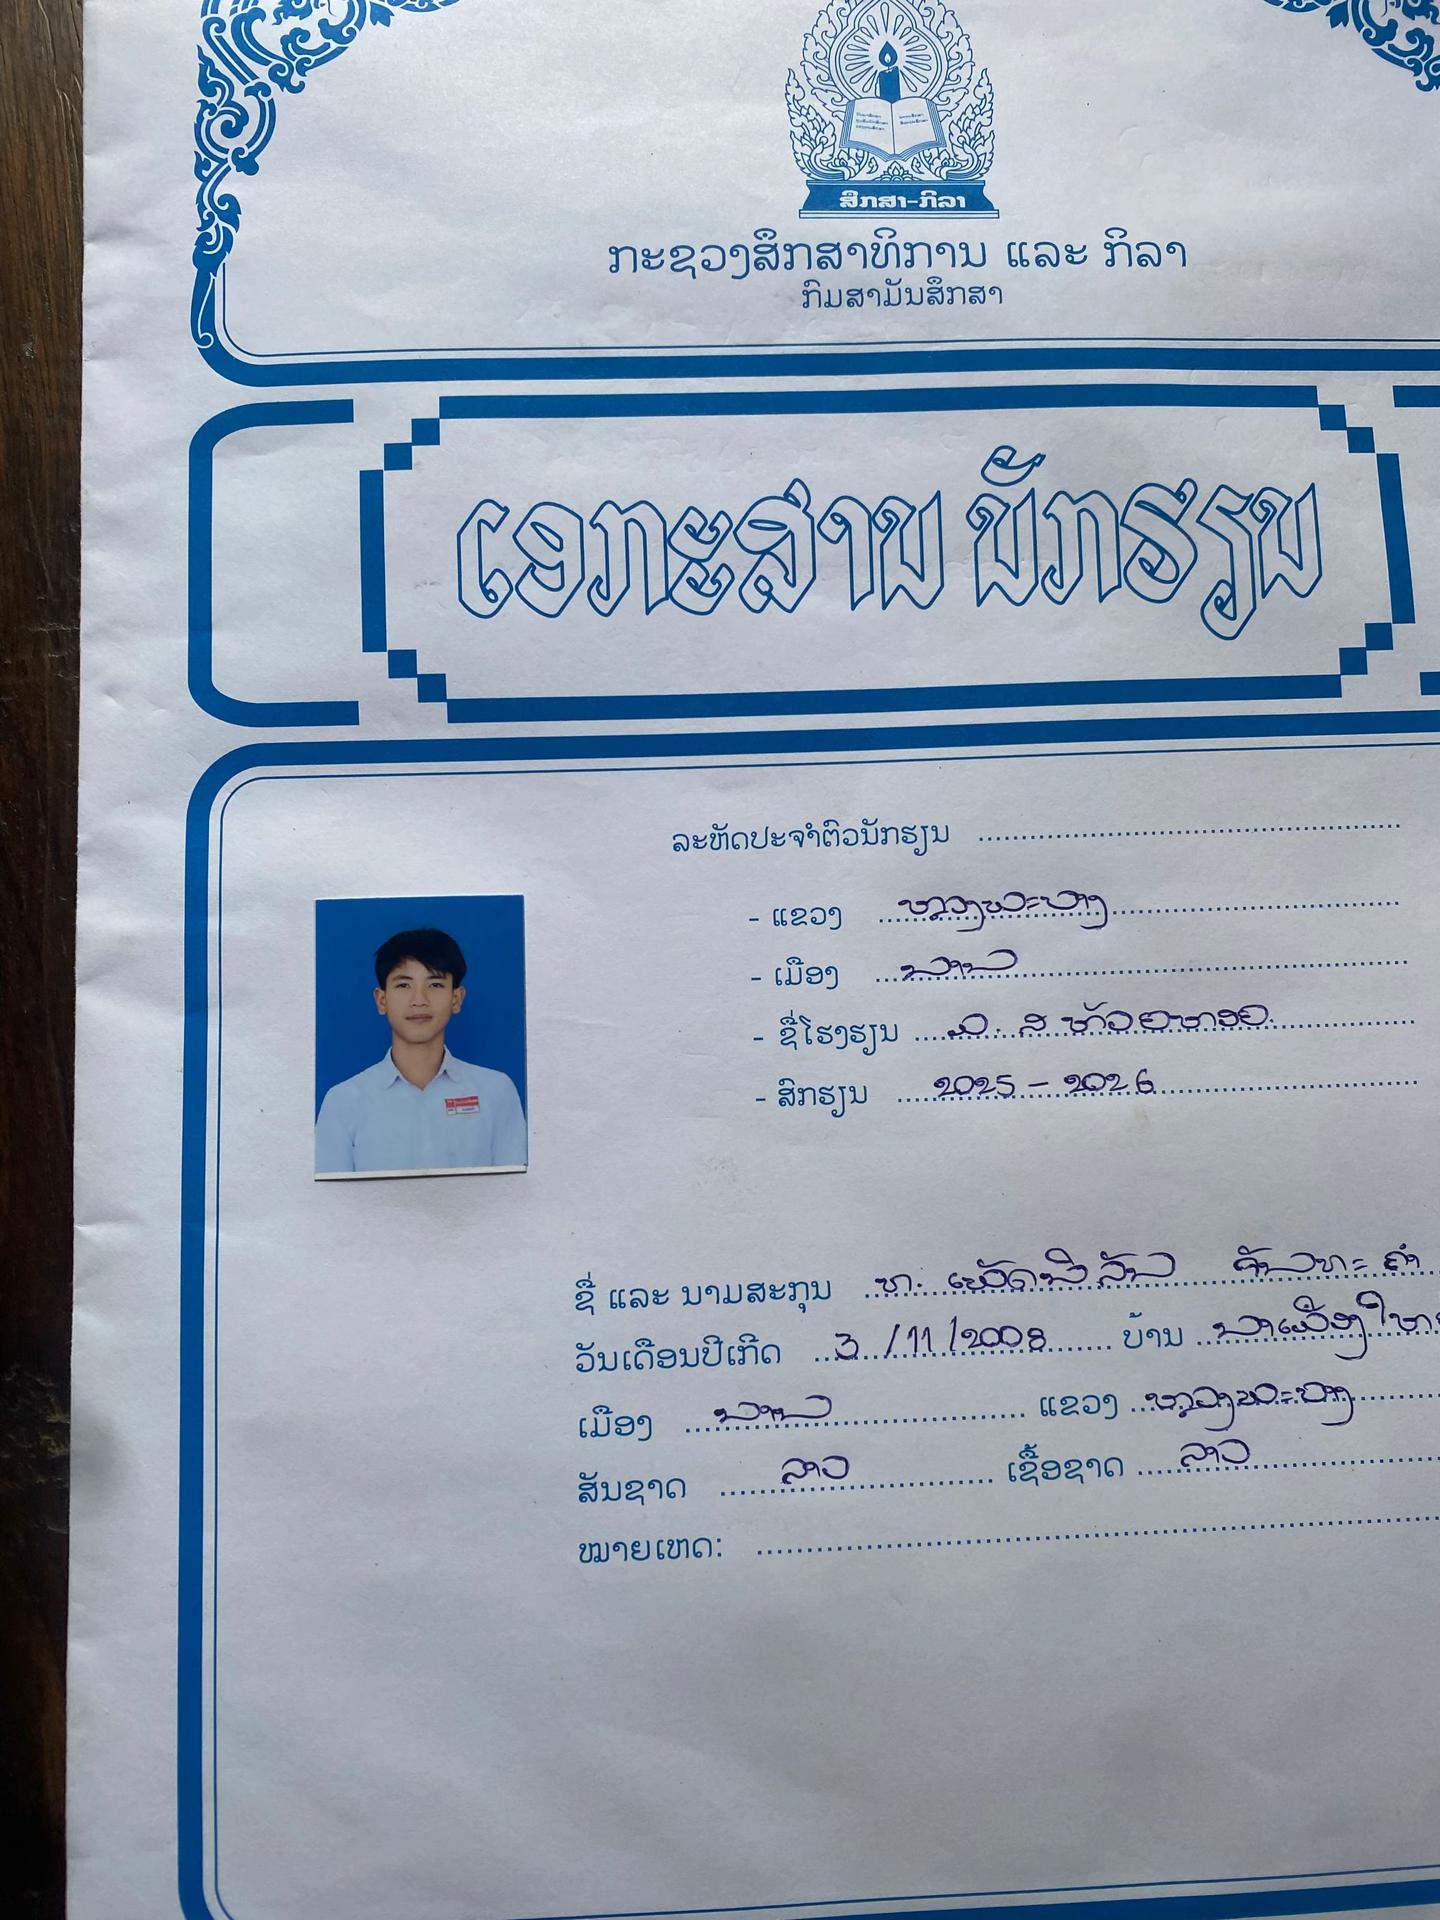 ສຶກສາ-ກິລາ
ກະຊວງສຶກສາທິການ ແລະ ກິລາ
ກົມສາມັນສຶກສາ
ເອກະສານ ນັກຮຽນ
ລະຫັດປະຈຳຕົວນັກຮຽນ
- ແຂວງ ຫຼວງພະບາງ
- ເມືອງ ນານ
- ຊື່ໂຮງຮຽນ ມ. ສ ຫ້ວຍຫອຍ
- ສົກຮຽນ 2025 - 2026
ຊື່ ແລະ ນາມສະກຸນ ທ. ເພັດພິລັນ ຈັນທະຄຳ
ວັນເດືອນປີເກີດ 3 /11 /2008 ບ້ານ
ເມືອງ ນານ ແຂວງ ຫຼວງພະບາງ
ສັນຊາດ ລາວ ເຊື້ອຊາດ ລາວ
ໝາຍເຫດ: